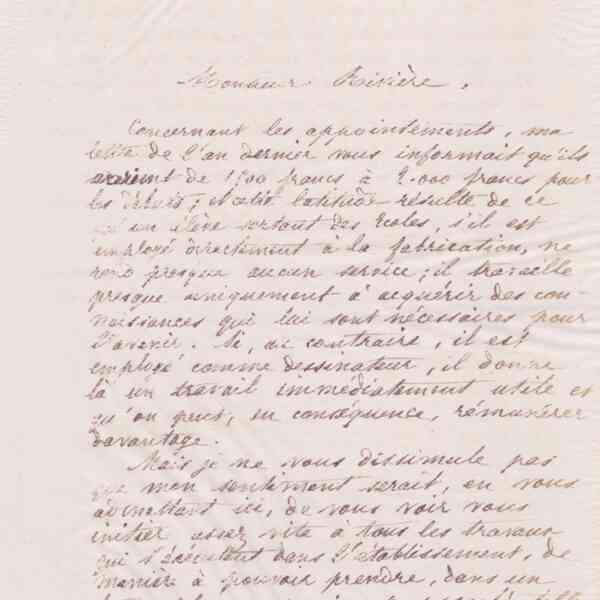 Monsieur Rivière,
Concernant les appointements, ma
lettre de l'an dernier vous informait qu'ils
seraient de 1500 francs à 2.000 francs pour
les débuts; cette latitude résulte de ce
qu'un élève sortant des Ecoles, s'il est
employé directement à la fabrication, ne
rend presque aucun service; il travaille
presque uniquement à acquérir des con-
naissances qui lui sont nécessaires pour
l'avenir. Si, au contraire, il est
employé comme dessinateur, il donne
là un travail immédiatement utile et
qu'on peut, en conséquence, rémunérer
davantage.
Mais je ne vous dissimule pas
que mon sentiment serait, en vous
admettant ici, de vous voir vous
initier assez vite à tous les travaux
qui s'exécutent dans l'établissement, de
manière à pouvoir prendre, dans un